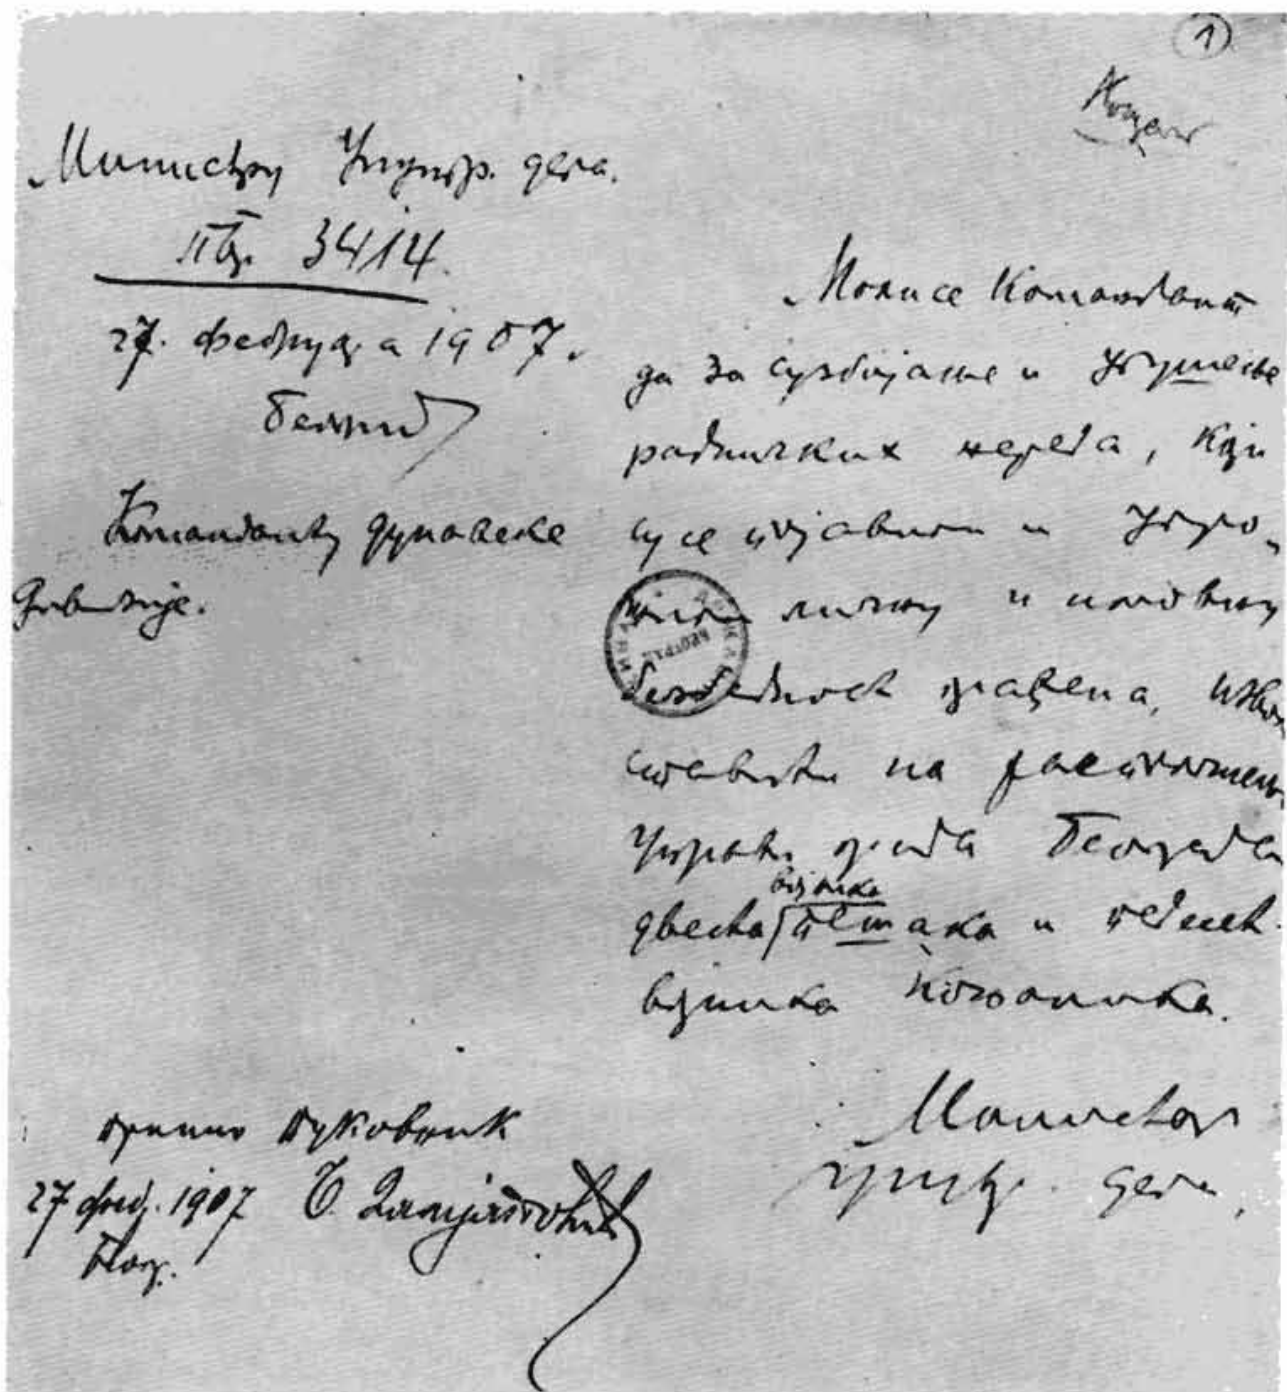 1
Министру Унутр. дела.
ПБр. 3414.
27. фебруара 1907.
Београд
Команданту дунавске
дивизије.
Моли се Командант
да за сузбијање и угушење
радничких нереда, који
су се појавили и угро-
зили личну и имовну
безбедност грађана, изволи
ставити на расположење
Управи града Београда
војника
двеста пешака и педесет
војника коњаника.
Министар
унутр. дела,
примио пуковник
27 феб. 1907
Беог.
БЕОГРАД